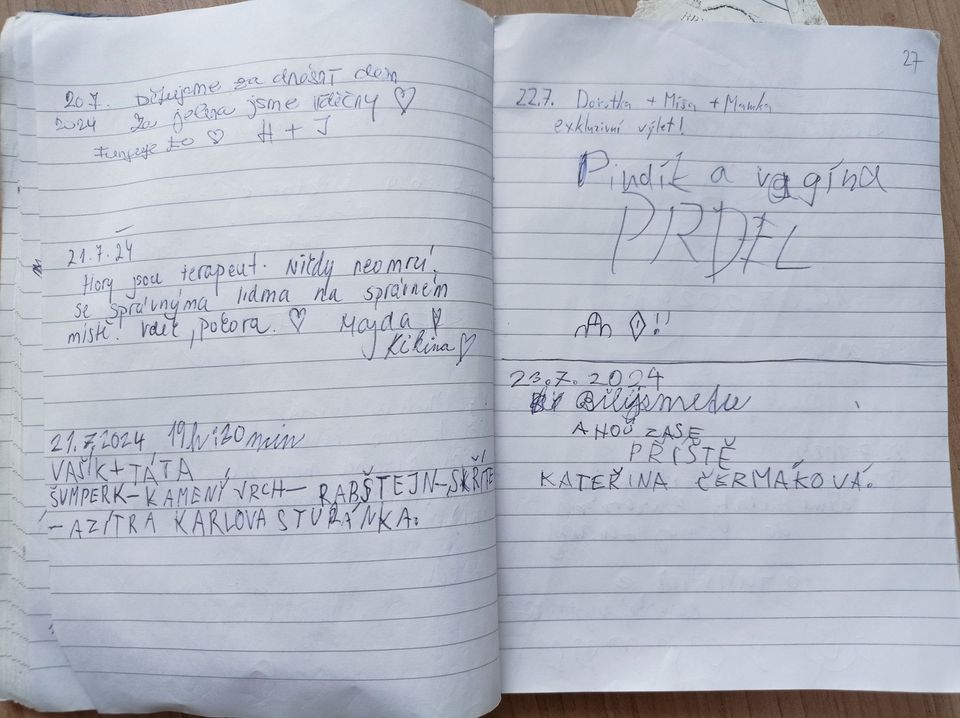 20.7. Děkujeme za dnešní den
2024 Za jelena jsme vděčny ♡
Funguje to ♡ H + J
21.7.24
Hory jsou terapeut. Nikdy neomrzí
se správnýma lidma na správném
místě. Vděk, pokora. ♡ Majda ♡
Kikina ♡
21.7.2024 19h:20min
VAŠÍK + TÁTA
ŠUMPERK – KAMENÝ VRCH – RABŠTEJN – SKŘÍTE
– A ZÍTRA KARLOVA STUDÁNKA.
27
22.7. Dorotka + Míša + Mamka
exkluzivní výlet!
Pindík a vagína
PRDEL
!!
23.7.2024
AHOJ ZASE
PŘÍŠTĚ
KATEŘINA ČERMÁKOVÁ.